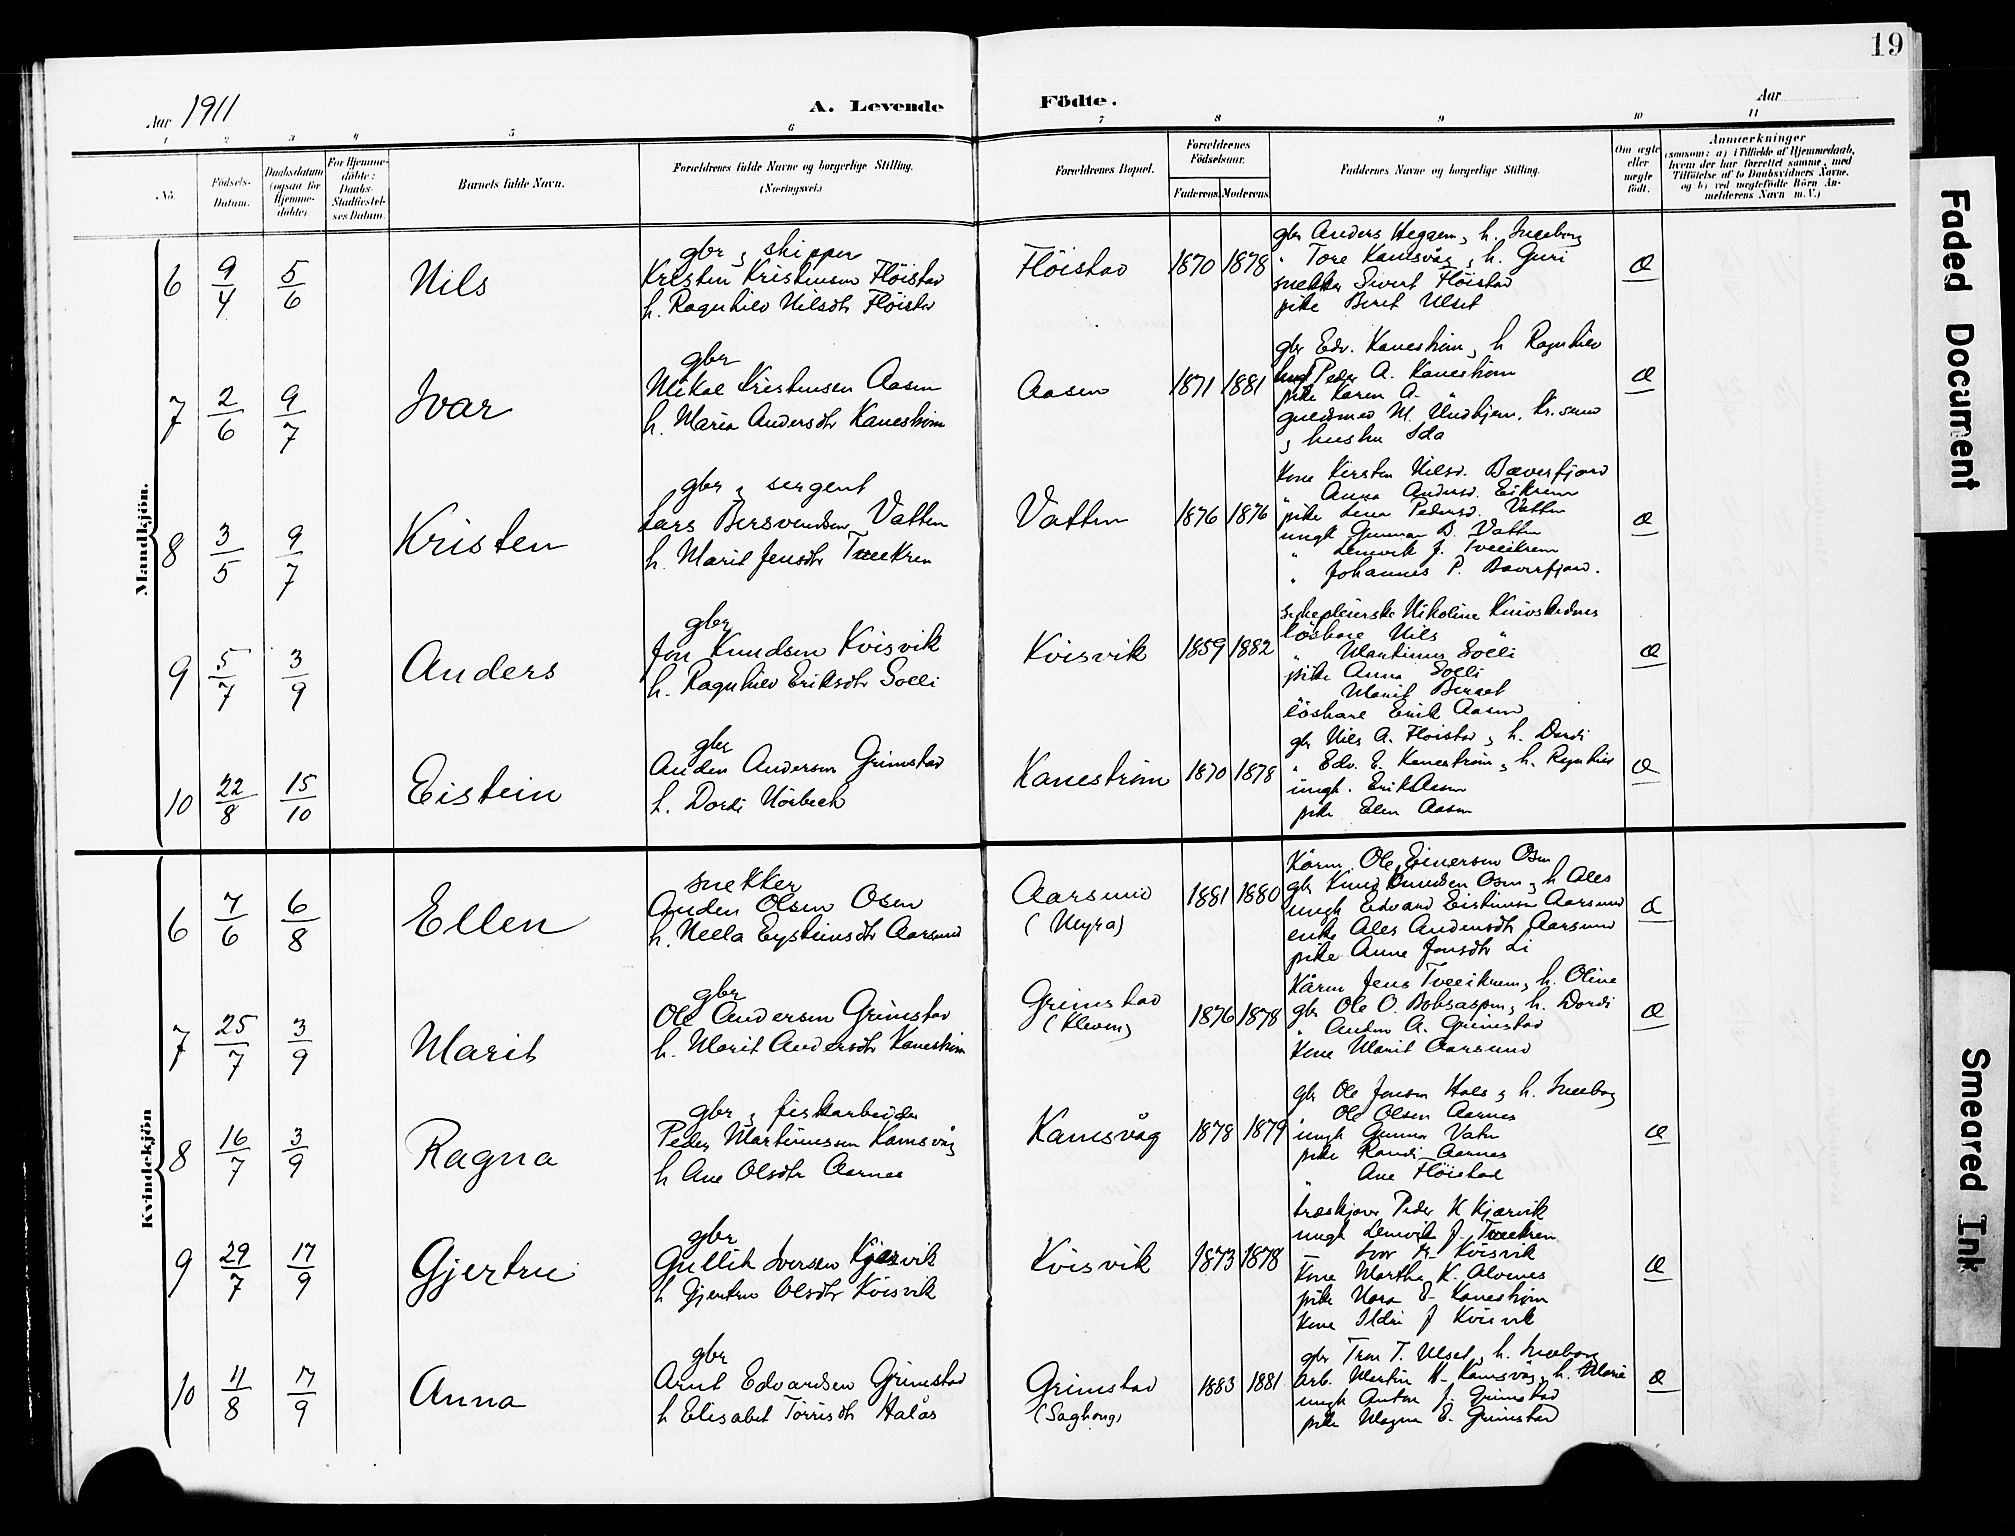 19
Aar 1911
A. Levende
Födte.
Aar
1 2 3 4 5 6
7 8 9 10 11
No.
Födsels-
Datum.
Daabsdatum
(ogsaa for
Hjemme-
döbte).
For Hjemme-
döbte:
Daabs-
Stadfæstel-
ses Datum.
Barnets fulde Navn.
Forældrenes fulde Navne og borgerlige Stilling.
(Næringsvei.)
Forældrenes Bopæl.
Forældrenes
Födselsaar.
Faderens
Moderens
Faddernes Navne og borgerlige Stilling.
Om ægte
eller
uægte
födt.
Anmærkninger
(saasom: a) i Tilfælde af Hjemmedaab,
hvem der har forrettet samme, med
Tilföielse af to Daabsvidners Navne.
og b) ved uægtefödte Börn An-
melderens Navn m. V.)
Mandkjön.
6
9/4
5/6
Nils
gbr & skipper
Kristen Kristensen Flöistad
h. Ragnhild Nilsdtr Flöistad
Flöistad
1870
1878
gbr Anders Heggem & h. Ingeborg
" Tore Kamsvåg & h. Guri
snekker Sivert Flöistad
pike Berit Ulset
Æ
7
2/6
9/7
Ivar
gbr
Mikal Kristensen Aasen
h. Maria Andersdtr Kaneström
Aasen
1871
1881
gbr Edv. Kaneström & h Ragnhild
ungk Peder A. Kaneström
pike Karen A. "
guldsmed M. Undhjem. Kr.sund
& hustru Ida
Æ
8
3/5
9/7
Kristen
gbr & sergent
Lars Bersvendsen Vatten
h. Marit Jensdtr Tveekrem
Vatten
1876
1876
Kone Kirsten Nilsd. Bæverfjord
" Anna Andersd. Eikrem
pike Lena Pedersd. Vatten
ungk Gunnar B. Vatten
" Lenvik J. Tveeikrem
" Johannes P. Bæverfjord.
Æ
9
5/7
3/9
Anders
gbr
Jon Knudsen Kvisvik
h. Ragnhild Eriksdtr Solli
Kvisvik
1859
1882
sykepleierske Nikoline
löskare Nils "
" Martinus Solli
pike Anna Solli
" Marit Berget
löskare Erik Aasen
Æ
10
22/8
15/10
Eistein
gbr
Anders Andersen Grimstad
h. Dordi Nörbech
Kaneström
1870
1878
gbr Nils A. Flöistad & h. Dordi
" Edv. E. Kaneström & h. Ragnhild
ungk. Erik Aasen
pike Elen Aasen
Æ
Kvindekjön
6
7/6
6/8
Ellen
snekker
Anders Olsen Osen
h. Nella Eysteinsdtr Aarsund
Aarsund
(Myra)
1881
1880
Kårm. Ole Einersen Osen
gbr Knud Knudsen Osen & h Ales
ungk Edvard Eistensen Aarsund
enke Ales Andersdtr Aarsund
pike Anne Jonsdtr Li
Æ
7
25/7
3/9
Marit
gbr
Ole Andersen Grimstad
h. Marit Andersdtr Kaneström
Grimstad
(Kleven)
1876
1878
Kårm Jens Tveeikrem & h. Oline
gbr Ole O. & h. Dordi
" Anders A. Grimstad
Kone Marit Aarsund
Æ
8
16/7
3/9
Ragna
gbr & fiskarbeider
Peder Martinussen Kamsvåg
h Ane Olsdtr Aarnes
Kamsvåg
1878
1879
gbr Ole Jonsen Hals & h. Ingeborg
" Ole Olsen Aarnes
ungk Gunnar Vatn
pike Randi Aarnes
" Ane Flöistad
Æ
9
29/7
17/9
Gjertru
gbr
Gullik Iversen Kjærvik
h Gjertru Olsdtr Kvisvik
Kvisvik
1873
1878
træskjærer Peder K Kjærvik
ungk Lenvik J. Tveekrem
— Ivar K- Kvisvik
Kone Marthe K. Alvenes
pike Nora E- Kaneström
Kone Ildri J Kvisvik
Æ
10
11/8
17/9
Anna
gbr
Arnt Edvardsen Grimstad
h Elisabet Torrisdtr Halås
Grimstad
(Saghaug)
1883
1881
gbr Tron T. Ulset & h. Ingeborg
Arb. Martin H- Kamsvåg & h. Marie
ungk Anton J. Grimstad
pike Magna E. Grimstad
Æ
Faded Document
Smeared Ink